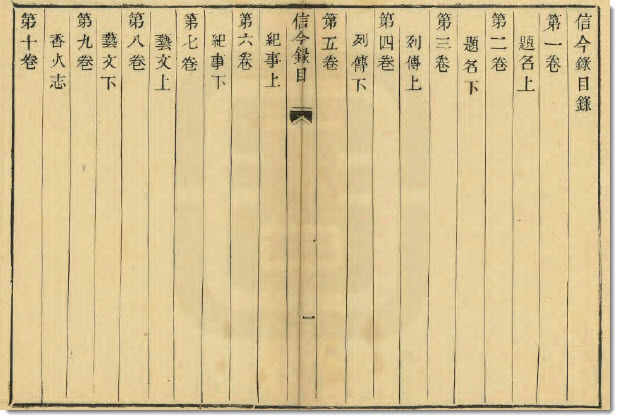 信今錄目錄
第一卷
題名上
第二卷
題名下
第三卷
列傳上
第四卷
列傳下
第五卷
信今錄目
一
紀事上
第六卷
紀事下
第七卷
藝文上
第八卷
藝文下
第九卷
香火志
第十卷